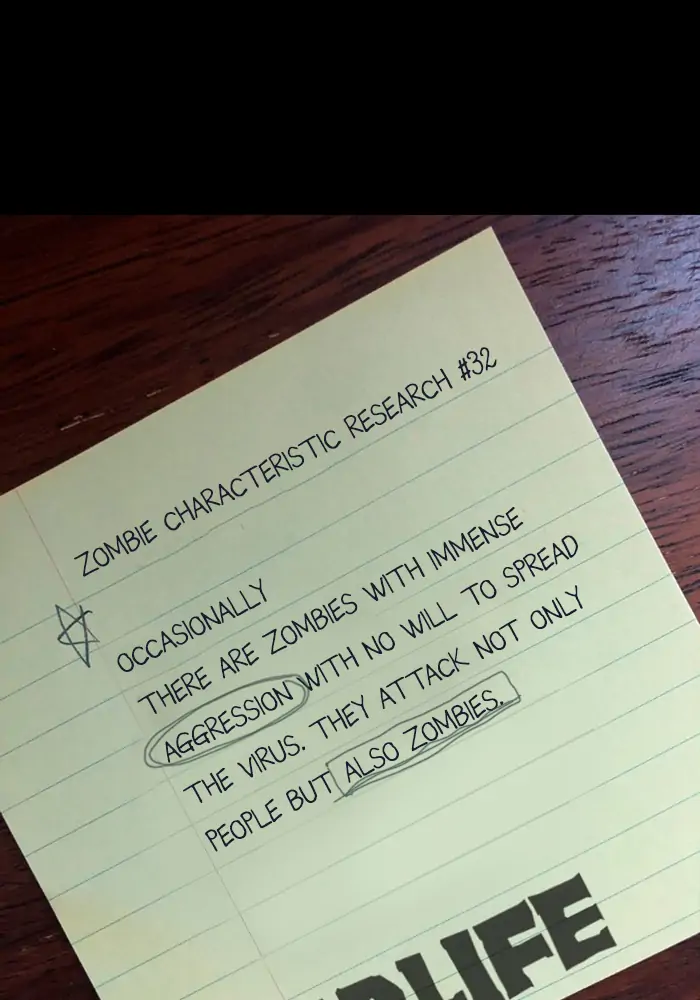 ZOMBIE CHARACTERISTIC RESEARCH #32
OCCASIONALLY
THERE ARE ZOMBIES WITH IMMENSE
AGGRESSION WITH NO WILL TO SPREAD
THE VIRUS. THEY ATTACK NOT ONLY
PEOPLE BUT ALSO ZOMBIES.